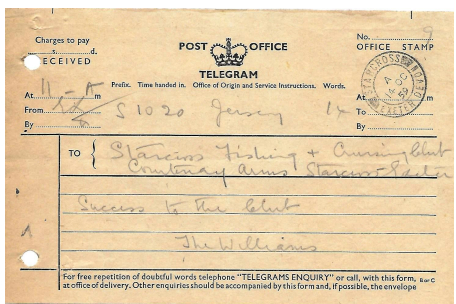 Charges to pay
s. d.
RECEIVED
POST OFFICE
TELEGRAM
No. 9
OFFICE STAMP
STARCROSS
EXETER
14 OC 59
Prefix. Time handed in. Office of Origin and Service Instructions. Words.
At 11-A m
From
By
S 1020 Jersey 14
At m
To
By
TO { Starcross Fishing + Cruising Club
Courtenay Arms Starcross-Exeter
Success to the Club
The Williams
For free repetition of doubtful words telephone "TELEGRAMS ENQUIRY" or call, with this form, B or C
at office of delivery. Other enquiries should be accompanied by this form and, if possible, the envelope